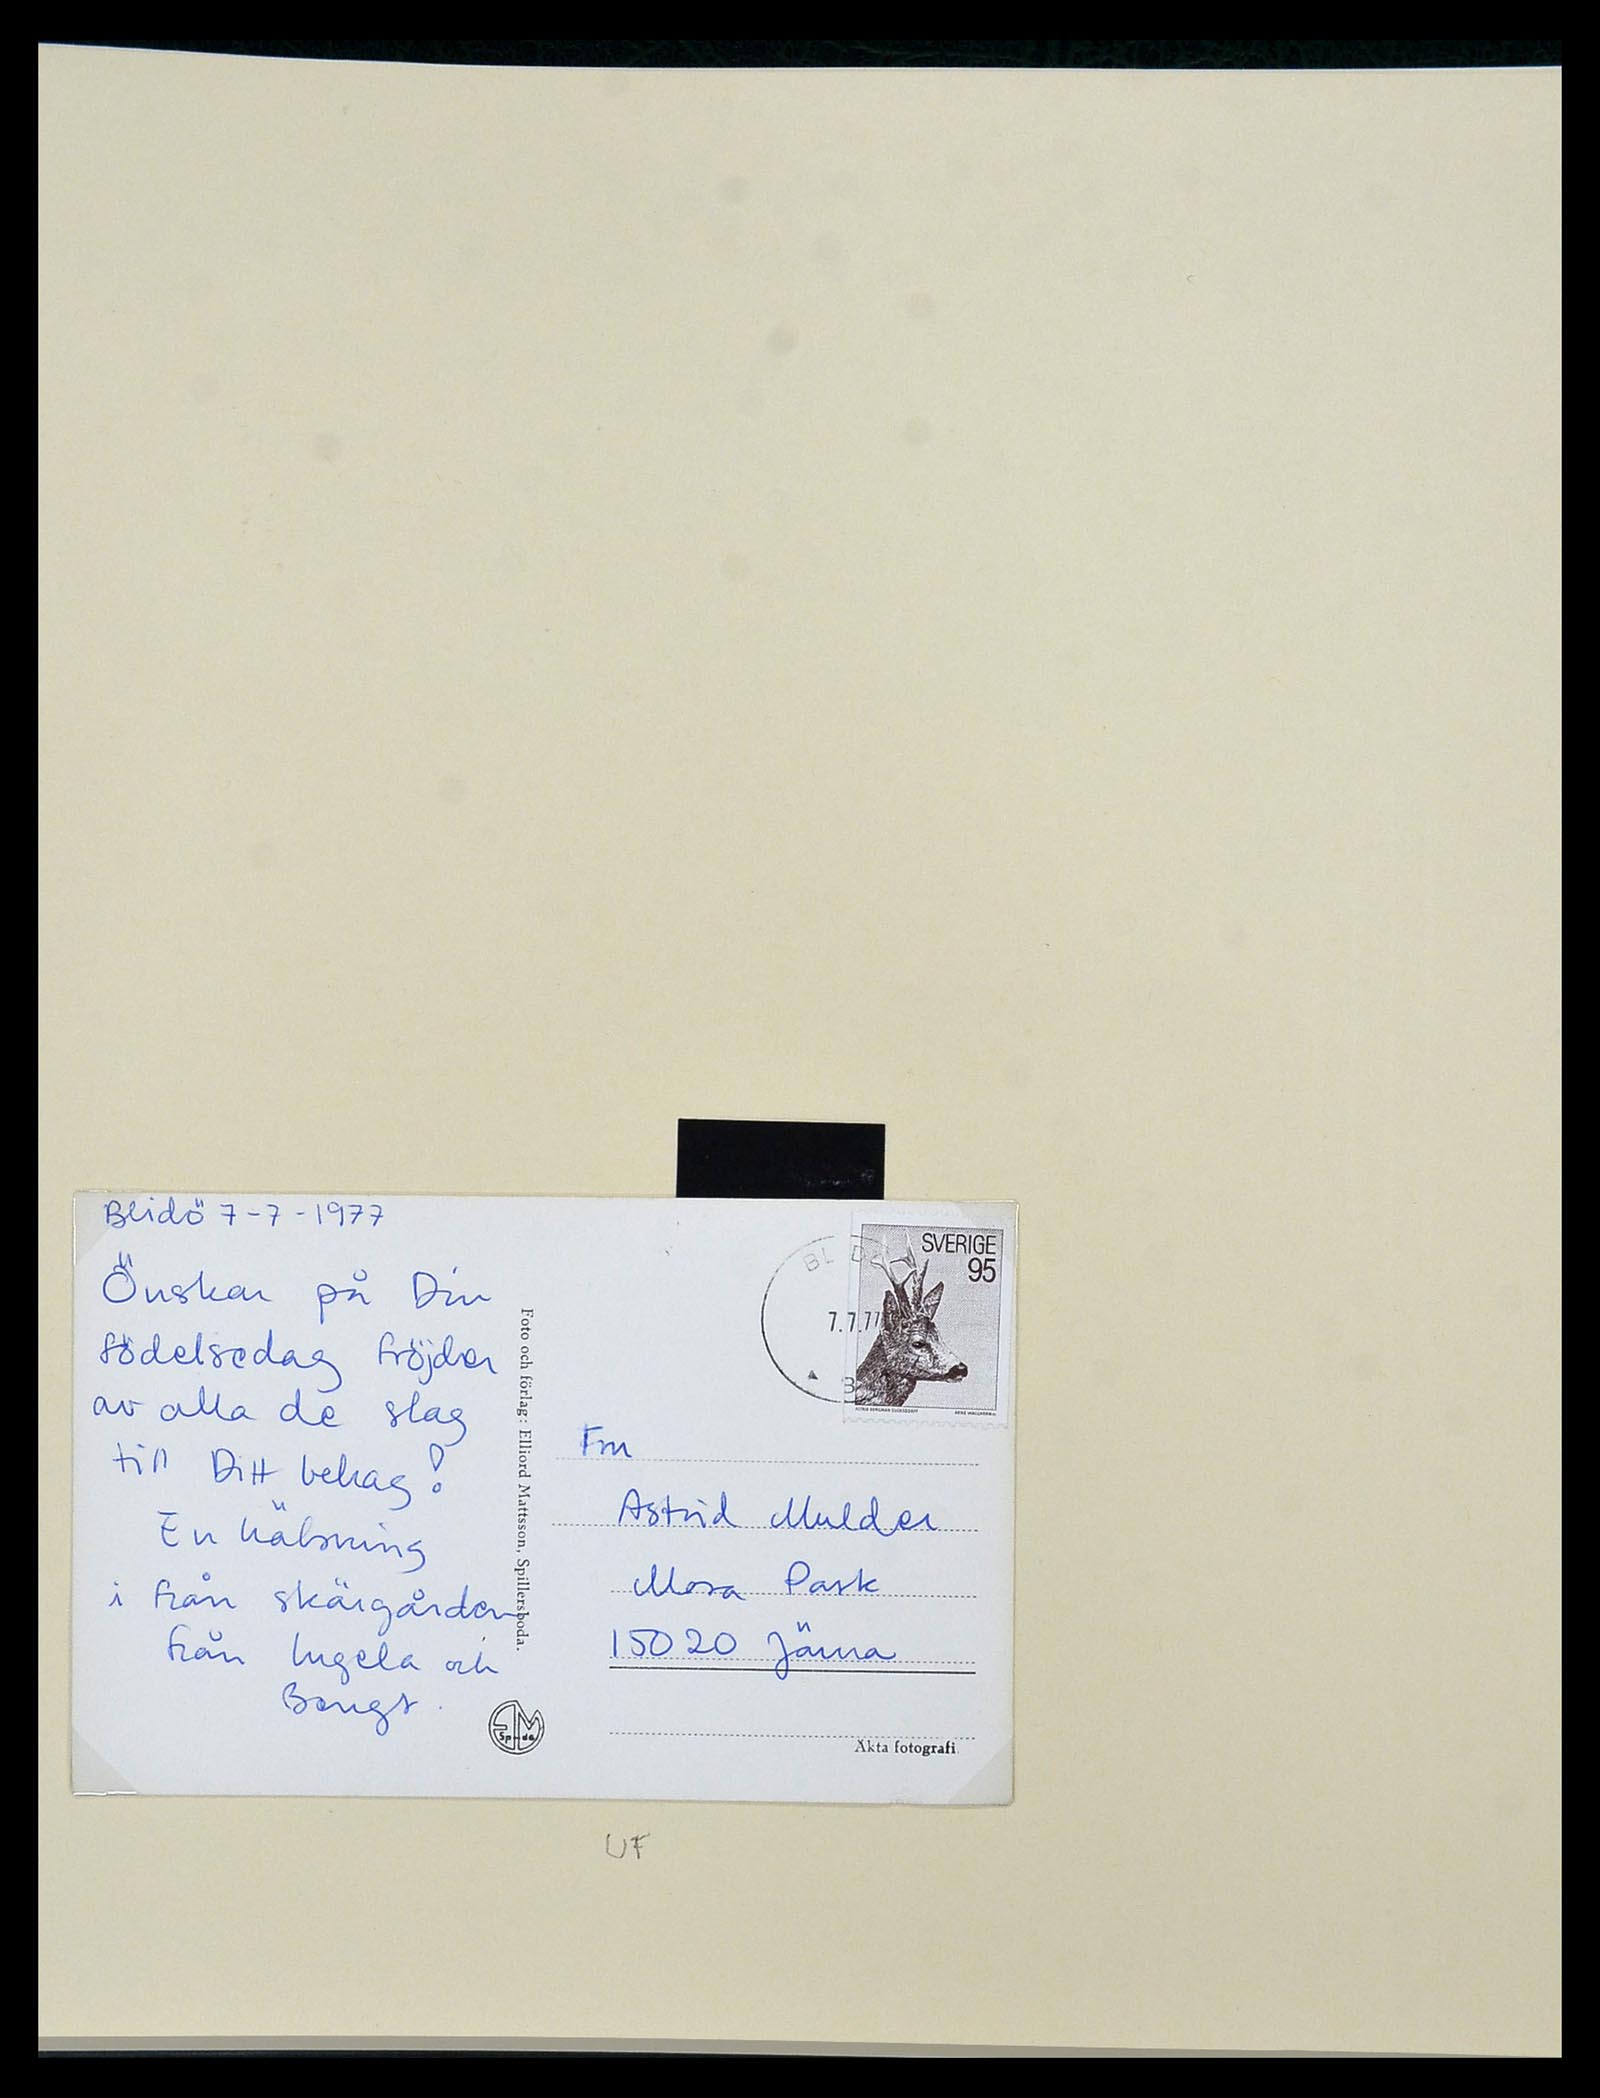 Blidö 7-7-1977
Önskar på Din
födelsedag fröjder
av alla de slag
till Ditt behag!
En hälsning
i från skärgården
från Ingela och
Bengt.
Foto och förlag: Elliord Mattsson, Spillersboda.
SM
Sp-da
BLIDÖ
7.7.77
B
SVERIGE
95
Frn
Astrid Mulder
Mora Park
15020 Järna
Äkta fotografi
UF